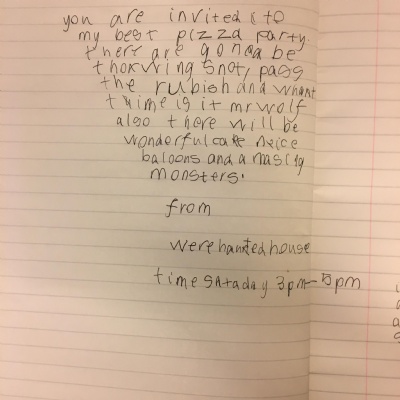 you are invited to
my best pizza party.
there are gonda be
thorwing snot, pass
the rubish and whant
trime is it mr wolf
also there will be
wonderful cake neice
baloons and amascig
monsters.
from
were haunted house
time sataday 3pm-5pm